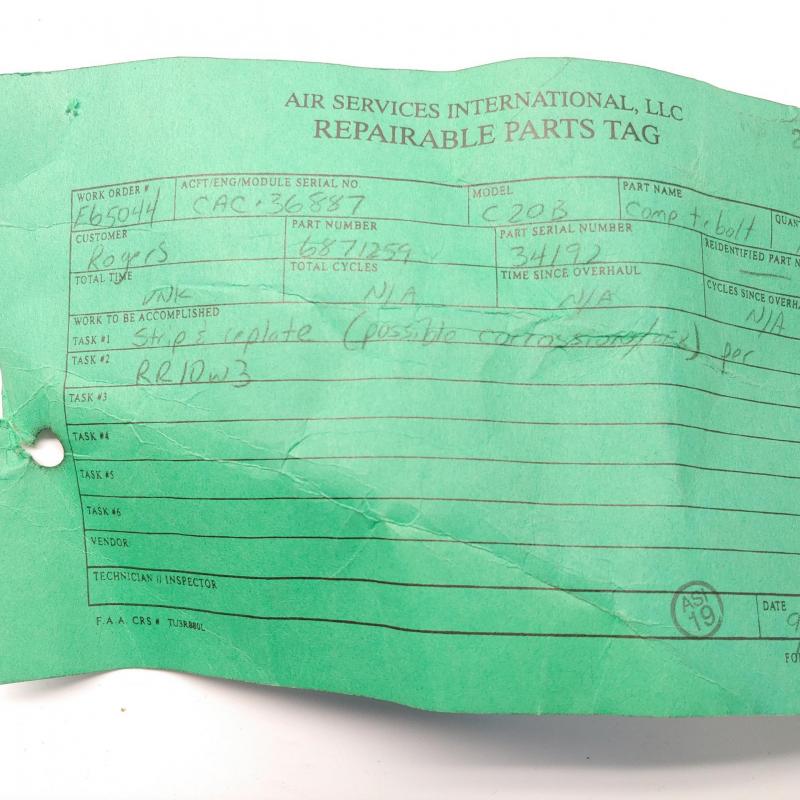 AIR SERVICES INTERNATIONAL, LLC
REPAIRABLE PARTS TAG
WORK ORDER # ACFT/ENG/MODULE SERIAL NO. MODEL PART NAME
E65044 CAC-36887 C20B Comp t. bolt
CUSTOMER PART NUMBER PART SERIAL NUMBER REIDENTIFIED PART
Rogers 6871259 34192
TOTAL TIME TOTAL CYCLES TIME SINCE OVERHAUL CYCLES SINCE
UNK N/A N/A N/A
WORK TO BE ACCOMPLISHED
TASK #1 Strip & replate (possible per
TASK #2 RR10W3
TASK #3
TASK #4
TASK #5
TASK #6
VENDOR
TECHNICIAN // INSPECTOR ASI 19 DATE
F.A.A. CRS # TU3R880L